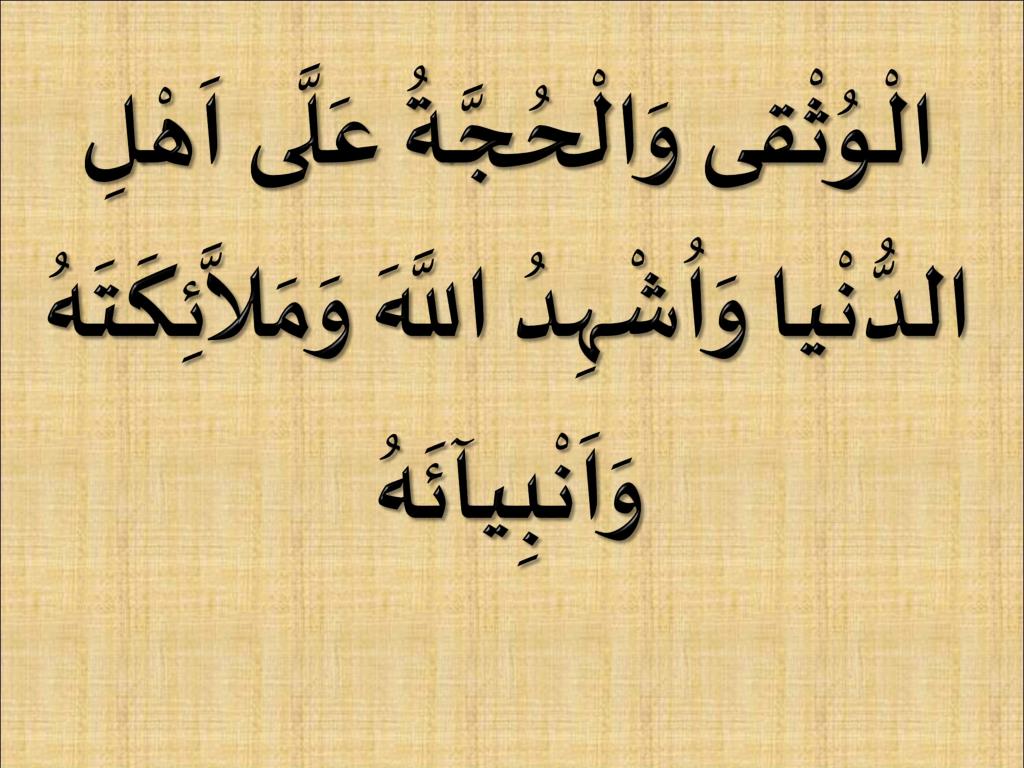 الْوُثْقى وَالْحُجَّةُ عَلَّى اَهْلِ
الدُّنْيا وَاُشْهِدُ اللَّهَ وَمَلاَّئِكَتَهُ
وَاَنْبِيآئَهُ